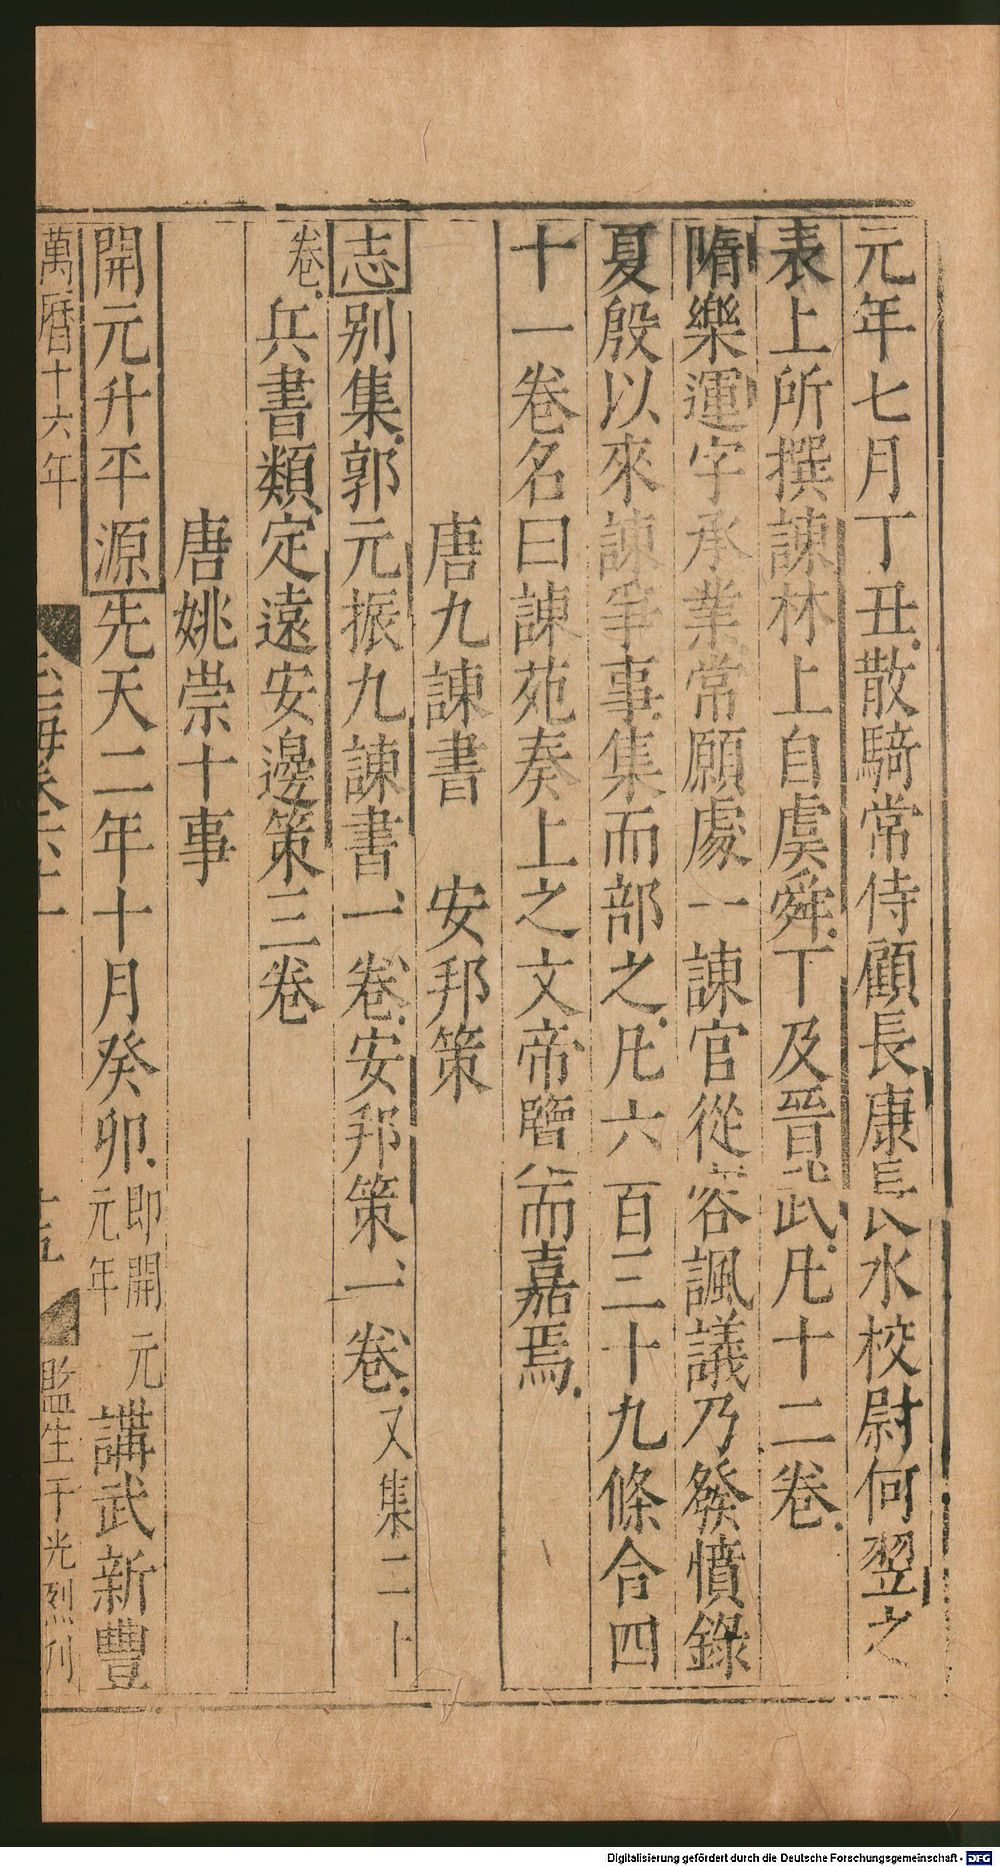 元年七月丁丑散騎常侍顧長康長水校尉何翌之
表上所撰諫林上自虞舜下及晉武凡十二卷
隋樂運字承業常願處一諫官從容諷議乃發憤錄
夏殷以來諫爭事集而部之凡六百三十九條合四
十一卷名曰諫苑奏上之文帝覽而嘉焉
唐九諫書　安邦策
志别集郭元振九諫書一卷安邦策一卷又集二十
卷兵書類定遠安邊策三卷
唐姚崇十事
開元升平源先天二年十月癸卯即開元元年講武新豐
萬曆十六年
玉海卷六十一
十五
監生于光烈刊
Digitalisierung gefördert durch die Deutsche Forschungsgemeinschaft - DFG